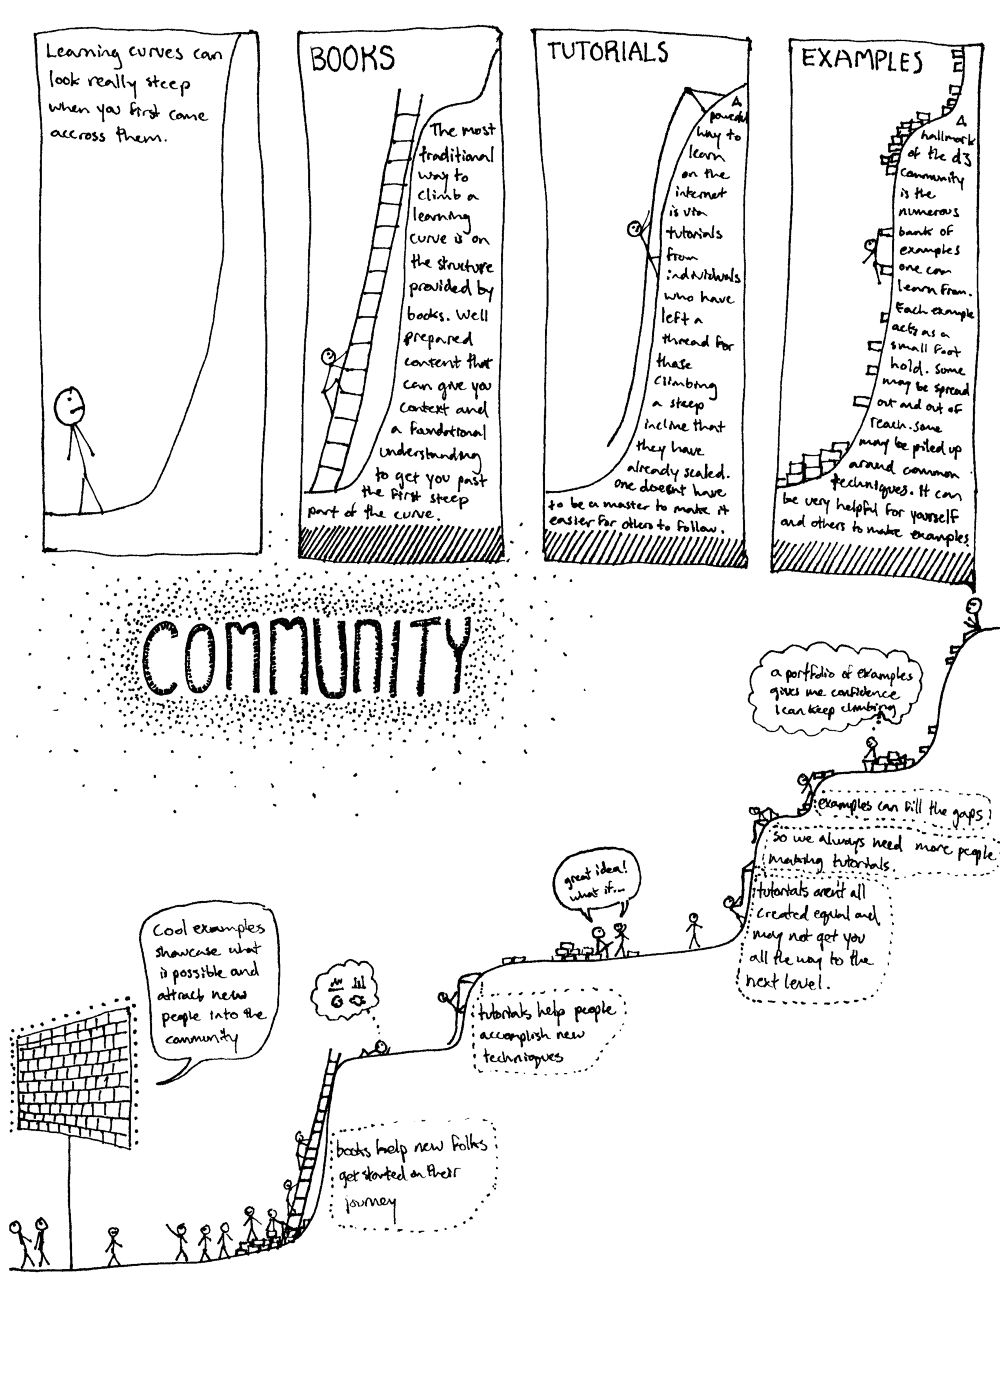 Learning curves can
look really steep
when you first come
accross them.
BOOKS
The most
traditional
way to
climb a
learning
curve is on
the structure
provided by
books. Well
prepared
content that
can give you
context and
a foundational
understanding
to get you past
the first steep
part of the curve.
TUTORIALS
A
powerful
way to
learn
on the
internet
is via
tutorials
from
individuals
who have
left a
thread for
those
climbing
a steep
incline that
they have
already scaled.
one doesnt have
to be a master to make it
easier for others to follow.
EXAMPLES
A
hallmark
of the d3
community
is the
numerous
bank of
examples
one can
learn from.
Each example
acts as a
small foot
hold. Some
may be spread
out and out of
reach. some
may be piled up
around common
techniques. It can
be very helpful for yourself
and others to make examples
COMMUNITY
a portfolio of examples
gives me confidence
I can keep climbing
examples can fill the gaps
so we always need more people
making tutorials.
tutorials arent all
created equal and
may not get you
all the way to the
next level.
great idea!
what if...
tutorials help people
accomplish new
techniques
cool examples
showcase what
is possible and
attract new
people into the
community
books help new folks
get started on their
journey